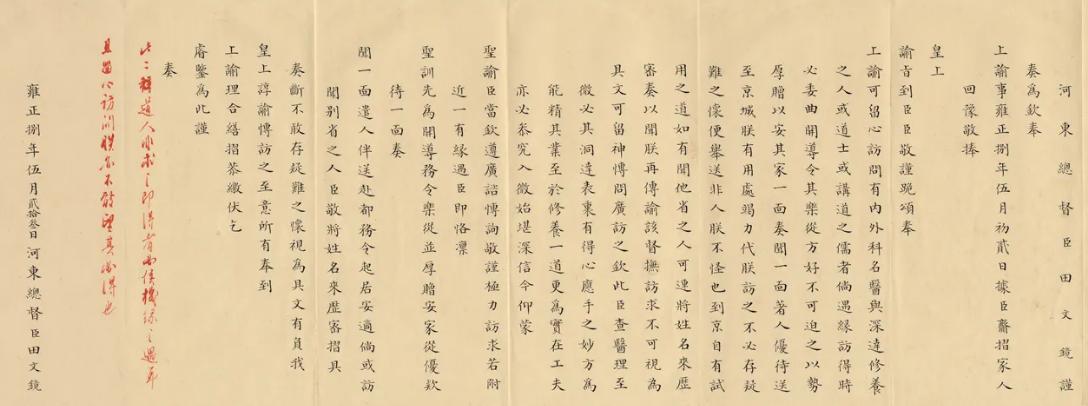 河東總督臣田文鏡謹
奏為欽奉
上諭事雍正捌年伍月初貳日據臣齎摺家人
回豫敬捧
皇上
諭旨到臣臣敬謹跪頌奉
上諭可留心訪問有內外科名醫與深達修養
之人或道士或講道之儒者倘遇緣訪得時
必委曲開導令其樂從方好不可迫之以勢
厚贈以安其家一面奏聞一面著人優待送
至京城朕有用處竭力代朕訪之不必存疑
難之懷便舉送非人朕不怪也到京自有試
用之道如有聞他省之人可速將姓名來歷
審奏以聞朕再傳諭該督撫訪求不可視為
具文可留神博問廣訪之欽此臣查醫理至
微必其洞達表裏有得心應手之妙方為
能精其業至於修養一道更為實在工夫
亦必叅究入微始堪深信今仰蒙
聖諭臣當欽遵廣諮博詢敬謹極力訪求若附
近一有緣遇臣即恪凜
聖訓先為開導務令樂從並厚贈安家從優欵
待一面奏
聞一面遣人伴送赴都務令起居安適倘或訪
聞別省之人臣敬將姓名來歷審摺具
奏斷不敢存疑難之懷視為具文有負我
皇上諄諭博訪之至意所有奉到
上諭理合繕摺恭繳伏乞
睿鑒為此謹
奏
此二種道人非求之即得者
雍正捌年伍月貳拾叁日河東總督臣田文鏡